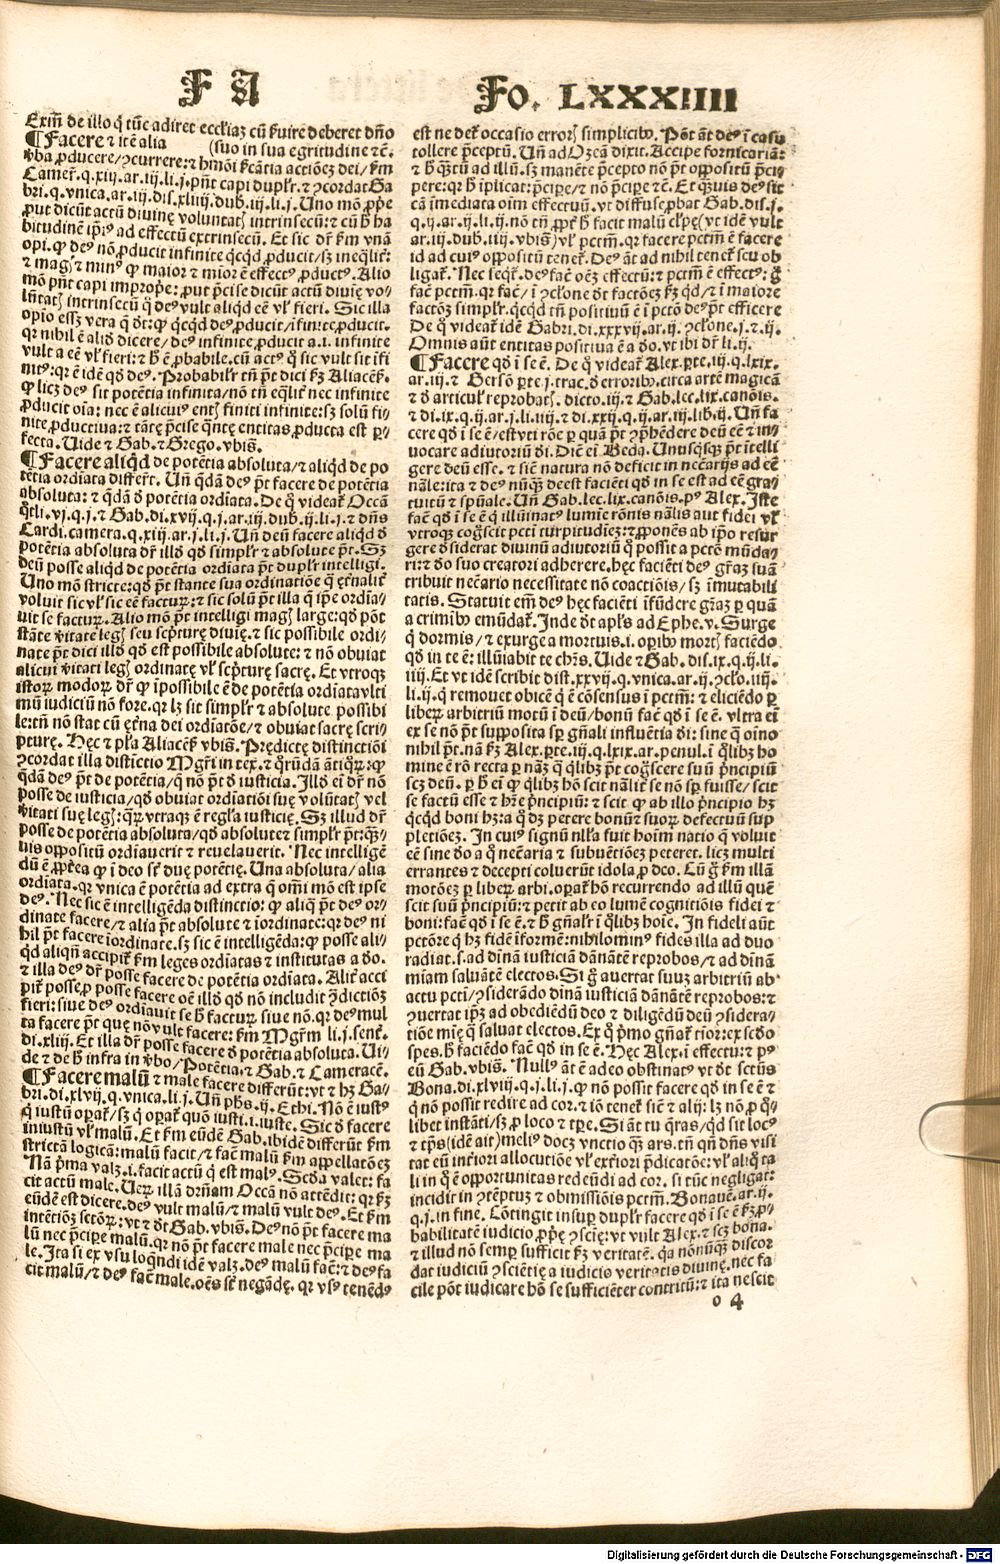 F A
Fo. LXXXIIII
Exm̄ de illo q̄ tūc adiret eccłiaꝫ cū ẜuire deberet dn̄o
¶Facere ⁊ itē alia (suo in sua egritudine ⁊c̄.
v̄ba ꝓducere/ꝯcurrere:⁊ hmōi ẜcātia actiōeꝫ dei/ẜm
Camer̄.q.xiij.ar.iij.li.j.pn̄t capi duplr̄.⁊ ꝯcordat Ga
bri.q.vnica.ar.iij.dis.xliiij.dub.iij.li.j. Uno mō ꝓp̄e
ꝓut dicūt actū diuinę voluntatꝭ intrinsecū:⁊ cū ħ ha
bitudinē ip̄iꝰ ad effectū extrinsecū. Et sic dr̄ ẜm vnā
opi.ꝙ deꝰ nō ꝓducit infinite qͥcqd ꝓducit/sꝫ ineq̄lit̄:
⁊ magꝭ ⁊ minꝰ ꝙ maior ⁊ mīor ē effectꝰ ꝓductꝰ. Alio
mō pn̄t capi imꝓpe: ꝓut p̄cise dicūt actū diuīę vo⸗
lūtatꝭ intrinsecū q̊ deꝰ vult aliqd eē vl̄ fieri. Sic illa
opīo esꝫ vera q̄ dt̄:ꝙ qͥcqd deꝰ ꝓducit/īfinite ꝓducit.
qꝛ nihil ē aliđ dicere/ deꝰ infinite ꝓducit a.i. infinite
vult a eē vl̄ fieri: ⁊ ħ ē ꝓbabile.cū actꝰ q̊ sic vult sit īfi
nitꝰ:qꝛ ē idē qđ deꝰ. Probabilr̄ tn̄ pt̄ dici ẜꝫ Aliacēẜ.
ꝙ licꝫ deꝰ sit potētia infinita/nō tn̄ eq̄lit̄ nec infinite
ꝓducit oīa: nec ē alicuiꝰ entꝭ finiti infinite:sꝫ solū fi⸗
nite ꝓductiua:⁊ tātę p̄cise qn̄tę entitas ꝓducta est ꝑ⸗
fecta. Uide ⁊ Gab.⁊ Grego.vbīs.
¶Facere aliqđ de potētia absoluta/⁊ aliqđ de po
tētia ordiata differt̄. Un̄ qdā deꝰ pt̄ facere de potētia
absoluta: ⁊ qdā đ potētia ordiata. De q̊ videat̄ Occā
q̊tli.vj.q.j.⁊ Gab.di.xvij.q.j.ar.iij.dub.ij.li.j.⁊ dn̄s
Cardi.camera.q.xiij.ar.j.li.j. Un̄ deū facere aliqđ đ
potētia absoluta dr̄ illđ qđ simplr̄ ⁊ absolute pt̄. Sꝫ
deū posse aliqđ de potētia ordiata pt̄ duplr̄ intelligi.
Uno mō stricte:qđ pt̄ stante sua ordinatiōe q̄ ēt̄nalit̄
voluit sic vl̄ sic eē facturꝫ:⁊ sic solū pt̄ illa q̄ ip̄e ordia⸗
uit se facturꝫ. Alio mō pt̄ intelligi magꝭ large:qđ pōt
stāte v̄itate legꝭ seu scp̄turę diuię:⁊ sic possibile ordi⸗
nate pt̄ dici illđ qđ est possibile absolute: ⁊ nō obuiat
alicui v̄itati legꝭ ordinatę vl̄ scp̄turę sacrę. Et vtroqꝫ
istoꝝ modoꝝ dr̄ ꝙ ipossibile ē de potētia ordiata vlti
mū iudiciū nō fore.qꝛ lꝫ sit simplr̄ ⁊ absolute possibi
le:tn̄ nō stat cū ēt̄na dei ordiatōe/⁊ obuiat sacrę scri⸗
pturę. Hęc ⁊ pl̄a Aliacēẜ vbīs. Prędictę distinctiōi
ꝯcordat illa distīctio Mgr̄i in tex.⁊ q̄rūdā ātiqͦꝝ:ꝙ
qdā deꝰ pt̄ de potētia/q̄ nō pt̄ đ iusticia. Illđ ei dr̄ nō
posse de iusticia/qđ obuiat ordiatiōi suę volūtatꝭ vel
v̄itati suę legꝭ:qꝛ vtraqꝫ ē regl̄a iusticię. Sꝫ illud dr̄
posse de potētia absoluta/qđ absolute ⁊ simplr̄ pt̄:qͣꝫ⸗
uis oppositū ordiauerit ⁊ reuelauerit. Nec intelligē
dū ē ꝓpt̄ea ꝙ ī deo st̄ duę potētię. Una absoluta/alia
ordiata.qꝛ vnica ē potētia ad extra q̄ omī mō est ipse
deꝰ. Nec sic ē intelligēda distinctio: ꝙ aliq̄ pt̄ deꝰ or⸗
dinate facere/⁊ alia pt̄ absolute ⁊ īordinate:qꝛ deꝰ ni
hil pt̄ facere īordinate.sꝫ sic ē intelligēda:ꝙ posse ali⸗
qđ aliqn̄ accipit̄ ẜm leges ordiatas ⁊ institutas a đo.
⁊ illa deꝰ dr̄ posse facere de potētia ordiata. Alit̄ acci
pit̄ posse,ꝓ posse facere oē illđ qđ nō includit ꝯdictiōꝫ
fieri:siue deꝰ ordiauit se ħ facturꝫ siue nō.qꝛ deꝰ mul
ta facere pt̄ quę nō vult facere: ẜm Mgr̄m li.j.senẜ.
di.xliij. Et illa dr̄ posse facere đ potētia absoluta. Ui⸗
de ⁊ de ħ infra in v̄bo/Potētia.⁊ Gab.⁊ Cameracē.
¶Facere malū ⁊ male facere differūt:vt ⁊ hꝫ Ga⸗
bri.di.xlvij.q.vnica.li.j. Un̄ pħs.ij.Ethi. Nō ē iustꝰ
q̄ iustū opat̄/sꝫ q̄ opat̄ quō iusti.i.iuste. Sic đ facere
iniustū vl̄ malū. Et ẜm eūdē Gab.ibidē differūt ẜm
strictā logicā: malū facit/⁊ facit malū ẜm appellatōeꝫ
Nā p̄ma valꝫ.i.facit actū q̄ est malꝰ. Scđa valet: fa
cit actū male. Ueꝝ illā drn̄am Occā nō attēdit: qꝛ ẜꝫ
eūdē est dicere.deꝰ vult malū/⁊ malū vult deꝰ. Et ẜm
intētiōeꝫ sctōꝝ: vt ⁊ đt Gab.vbīs. Deꝰ nō pt̄ facere ma
lū nec p̄cipe malū.qꝛ nō pt̄ facere male nec p̄cipe ma
le. Ita si ex vsu loquēdi idē valꝫ.deꝰ malū facit:⁊ deꝰ fa
cit malū/⁊ deꝰ facit male.oēs st̄ negādę. qꝛ vsꝰ tenēdꝰ
est ne det̄ occasio erroꝝ simplicibꝰ. Pōt āt deꝰ ī casu
tollere p̄ceptū. Un̄ ad Ozeā dixit. Accipe fornicariā:
⁊ ħ qͣꝫtū ad illū.sꝫ manēte p̄cepto nō pt̄ oppositū p̄ci⸗
pere:qꝛ ħ īplicat: p̄cipe/⁊ nō p̄cipe ⁊c̄. Et qͣꝫuis deꝰ sit
cā imediata oim effectuū.vt diffuse ꝓbat Gab.dis.j.
q.ij.ar.ij.li.ij.nō tn̄ ꝓpt̄ ħ facit malū cl̄pę(vt idē vult
ar.iij.dub.iiij.vbīs)vl̄ pctm̄.qꝛ facere pctm̄ ē facere
id ad cuiꝰ oppositū tenet̄. Deꝰ āt ad nihil tenet̄ seu ob
ligat̄. Nec seqt̄.deꝰ facit oēꝫ effectū:⁊ pctm̄ ē effectꝰ: g̊
facit pctm̄.qꝛ facit/ ī ꝯcl̄one đt factōeꝫ ẜꝫ qđ/⁊ ī maiore
factōꝫ simplr̄.qͥcqd tn̄ positiuū ē ī pctō deꝰ pt̄ efficere
De q̊ videat̄ idē Gabri.di.xxxvij.ar.ij.ꝯcl̄one.j.⁊.ij.
Omnis aūt entitas positiua ē a đo.vt ibi dr̄ li.ij.
¶Facere qđ ī se ē. De q̊ videat̄ Alex.ꝑte.iij.q.lxix.
ar.iij.⁊ Gersō ꝑte.j.trac.đ erroribꝰ.circa artē magicā
⁊ đ articul̄ reprobatꝭ. dicto.iij.⁊ Gab.lec.lix.canōis.
⁊ di.ix.q.ij.ar.j.li.iiij.⁊ di.xxij.q.ij.ar.iij.lib.ij. Un̄ fa
cere qđ ī se ē/est vti rōe ꝑ quā pt̄ ꝯp̄hēdere deū eē ⁊ in⸗
uocare adiutoriū di. Dic̄ ei Beda. Unusqͥsqꝫ pt̄ itelli
gere deū esse. ⁊ siē natura nō deficit in necarijs ad eē
nāle:ita ⁊ deꝰ nūqͣꝫ deest faciēti qđ in se est ad eē gra⸗
tuitū ⁊ spūale. Un̄ Gab.lec.lix.canōis.pꝰ Alex. Iste
facit qđ ī se ē q̄ illūinatꝰ lumīe rōnis nālis aut fidei vl̄
vtroqꝫ cogͦscit pcti turpitudieꝫ:⁊ ꝓponēs ab ip̄o resur
gere đsiderat diuinū adiutoriū q̊ possit a pctō mūda⸗
ri:⁊ đo suo creatori adherere.hęc faciēti deꝰ grāꝫ suā
tribuit necario necessitate nō coactiōis/sꝫ īmutabili
tatis. Statuit em̄ deꝰ hęc faciēti īfūdere grāꝫ ꝑ quā
a crimībꝰ emūdat̄. Inde đt apl̄s ad Ephe.v. Surge
q̄ dormis/⁊ exurge a mortuis.i.opibꝰ mortꝭ faciēdo
qđ in te ē: illūiabit te chr̄s. Uide ⁊ Gab.dis.ix.q.ij.li.
iiij. Et vt idē scribit dist.xxvij.q.vnica.ar.ij.ꝯclo.iiij.
li.ij.q̄ remouet obicē q̄ ē cōsensus ī pctm̄: ⁊ eliciēdo ꝑ
libeꝝ arbitriū motū ī deū/bonū facit qđ ī se ē. vltra ei
ex se nō pt̄ supposita sp̄ gn̄ali influētia đi: sine q̄ oīno
nihil pt̄.nā ẜꝫ Alex.ꝑte.iij.q.lxix.ar.penul.ī qͦlibꝫ ho
mine ē rō recta ꝑ nāꝫ q̄ qͥlibꝫ pt̄ cogͦscere suū p̄ncipiū
scꝫ deū. ꝑ ħ ei ꝙ qͥlibꝫ hō scit nālit̄ se nō sp̄ fuisse/scit
se factū esse ⁊ hr̄e p̄ncipiū: ⁊ scit ꝙ ab illo p̄ncipio hꝫ
qͥcqd boni hꝫ:a q̊ đꝫ petere bonū ⁊ suoꝝ defectuū sup
pletiōeꝫ. In cuiꝰ signū nll̄a fuit hoīm natio q̄ voluit
eē sine đo a q̊ necaria ⁊ subuētiōeꝫ peteret. licꝫ multi
errantes ⁊ decepti coluerūt idola ꝓ deo. Cū g̊ ẜm illā
motōeꝫ ꝑ libeꝝ arbi.opat̄ hō recurrendo ad illū quē
scit suū p̄ncipiū:⁊ petit ab eo lumē cognitiōis fidei ⁊
boni: facit qđ ī se ē.⁊ ħ gn̄alr̄ ī qͦlibꝫ hoīe. In fideli aūt
pctōre q̄ hꝫ fidē īformē:nihilominꝰ fides illa ad duo
radiat.s.ad diuīnā iusticiā dānātē reprobos/⁊ ad diuīnā
miam saluātē electos. Si g̊ auertat suuꝫ arbitriū ab
actu pcti/ꝯsiderādo diuīnā iusticiā dānātē reprobos:⁊
ꝯuertat ip̄ꝫ ad obediēdū deo ⁊ diligēdū deū ꝯsidera⸗
tiōe mīę q̄ saluat electos. Ex q̊ p̄mo gn̄at̄ tīor:ex scđo
spes.ħ faciēdo facit qđ in se ē. Hęc Alex.ī effectu:⁊ pꝰ
eū Gab.vbīs. Nullꝰ āt ē adeo obstinatꝰ vt đt sctūs
Bona.di.xlviij.q.j.li.j.ꝙ nō possit facere qđ in se ē ⁊
q̊ nō possit redire ad cor.⁊ iō tenet̄ siē ⁊ alij: lꝫ nō ꝓ qͦ⸗
libet instāti/sꝫ ꝓ loco ⁊ tꝑe. Si āt tu qͣras/qđ sit locꝰ
⁊ tp̄s(idē ait)meliꝰ docꝫ vnctio qͣꝫ ars.tn̄ qn̄ dn̄s visi
tat eū inf̄iori allocutiōe vl̄ ext̄iori p̄dicatōe: vl̄ aliq̊ ta
li in q̊ ē opportunitas redeūdi ad cor. si tūc negligat:
incidit in ꝯtēptuꝫ ⁊ obmissiōis pctm̄. Bonauē.ar.ij.
q.j.in fine. Cōtingit insuꝑ duplr̄ facere qđ ī se ē ẜꝫ ꝓ⸗
babilitatē iudicio ꝓprię ꝯscię: vt vult Alex.⁊ scꝫ bona.
⁊ illud nō semꝑ sufficit ẜꝫ veritatē. qa nōnūqͣꝫ discor
dat iudiciū ꝯsciētię a iudicis veritatis diuinę.nec fa
cile pōt iudicare hō se sufficiēter contritū:⁊ ita nescit
o 4
Digitalisierung gefördert durch die Deutsche Forschungsgemeinschaft - DFG